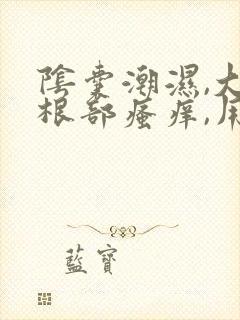 陰囊潮濕,大
根部瘙痒,用
藍寶